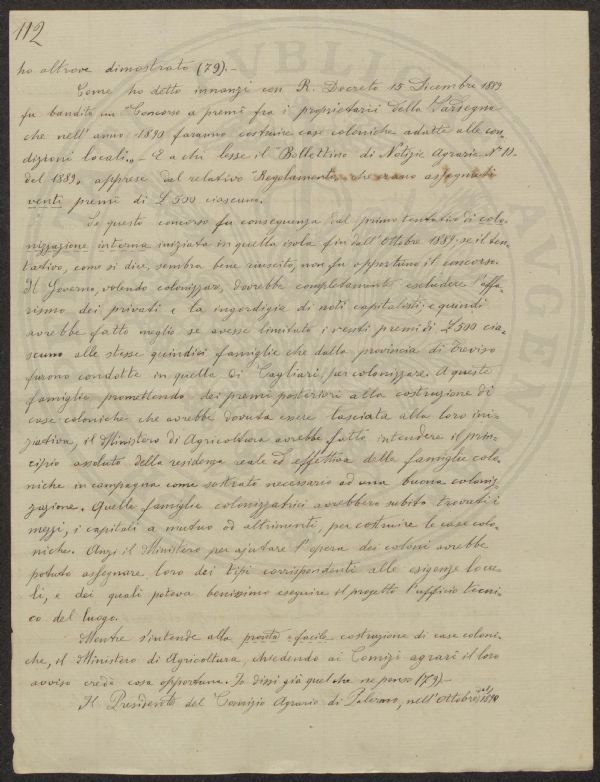 112
ho altrove dimostrato (79).-
Come ho detto innanzi con R. Decreto 15 Dicembre 1889
fu bandito un "Concorso a premî fra i proprietarii della Sardegna
che nell'anno 1890 faranno costruire case coloniche adatte alle con-
dizioni locali". - E a chi lesse il Bollettino di Notizie Agrarie N°
del 1889, apprese dal relativo Regolamento che erano assegnati
venti premî di £ 500 ciascuno.
Se questo concorso fu conseguenza del primo tentativo di colo-
nizzazione interna iniziata in quella isola fin dall'Ottobre 1889; se il ten-
tativo, come si dice, sembra bene riuscito, non fu opportuno il concorso.
Il Governo, volendo colonizzare, dovrebbe completamente escludere l'affa-
rismo dei privati e la ingordigia di noti capitalisti: e quindi
avrebbe fatto meglio se avesse limitato i venti premi di £ 500 cia-
scuno alle stesse quindici famiglie che dalla provincia di Treviso
furono condotte in quella di Cagliari, per colonizzare. A queste
famiglie promettendo dei premi posteriori alla costruzione di
case coloniche che avrebbe dovuta essere lasciata alla loro ini-
ziativa, il Ministero di Agricoltura avrebbe fatto intendere il prin-
cipio assoluto della residenza reale ed effettiva delle famiglie colo-
niche in campagna come sostrato necessario ad una buona coloniz-
zazione. Quelle famiglie colonizzatrici avrebbero subito trovati i
mezzi, i capitali a mutuo od altrimenti, per costruire le case colo-
niche. Anzi il Ministero per ajutare l'opera dei coloni avrebbe
potuto assegnare loro dei tipi corrispondenti alle esigenze loca-
li, e dei quali poteva benissimo eseguire il progetto l'ufficio tecni-
co del luogo.
Mentre s'intende alla pronta e facile costruzione di case coloni-
che, il Ministero di Agricoltura, chiedendo ai Comizi agrarî il loro
avviso credé cosa opportuna. Io dissi già quel che ne penso (79).-
Il Presidente del Comizio Agrario di Palermo, nell'Ottobre del 1890